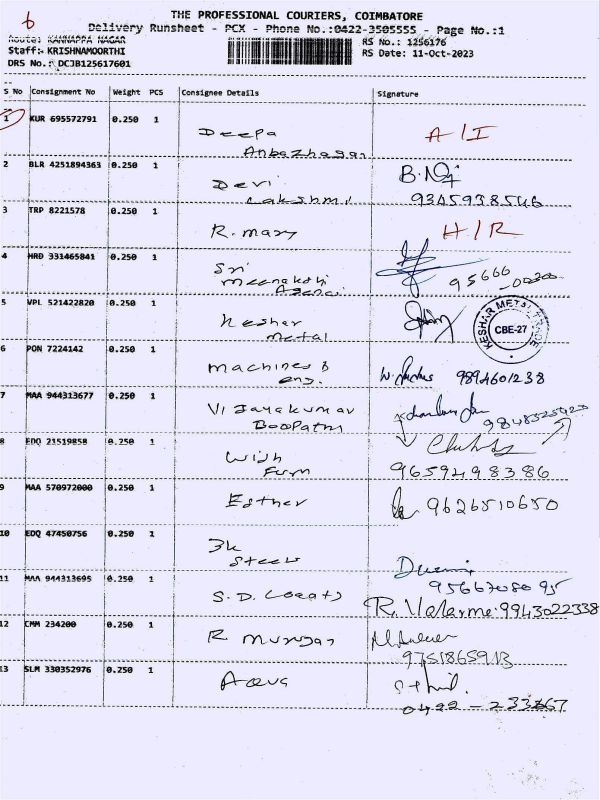 6
THE PROFESSIONAL COURIERS, COIMBATORE
Delivery Runsheet - PCX - Phone No.:0422-3505555 - Page No.:1
Route: KANNAPPA NAGAR
RS No.: 1256176
Staff:- KRISHNAMOORTHI
RS Date: 11-Oct-2023
DRS No.: DCJB125617601
S No Consignment No Weight PCS Consignee Details Signature
1 KUR 695572791 0.250 1 Deepa A/I
Anbazhagan
2 BLR 4251894363 0.250 1 Devi
Lakshmi 9345938546
3 TRP 8221578 0.250 1 R. mary H/R
4 HRD 331465841 0.250 1 Sri
meenakshi 95666
5 VPL 521422820 0.250 1 Keshar
metal
KESHAR METAL
CBE-27
6 PON 7224142 0.250 1 machines &
eng. 9894601238
7 MAA 944313677 0.250 1 Vijayakumar
Boopathy
8 EDQ 21519858 0.250 1 Wish
Furn 9659498386
9 MAA 570972000 0.250 1 Esther 9626510650
10 EDQ 47450756 0.250 1 3k
Steels
11 MAA 944313695 0.250 1 S. D. 9943022338
12 CMM 234200 0.250 1 R murugan
13 SLM 330352976 0.250 1